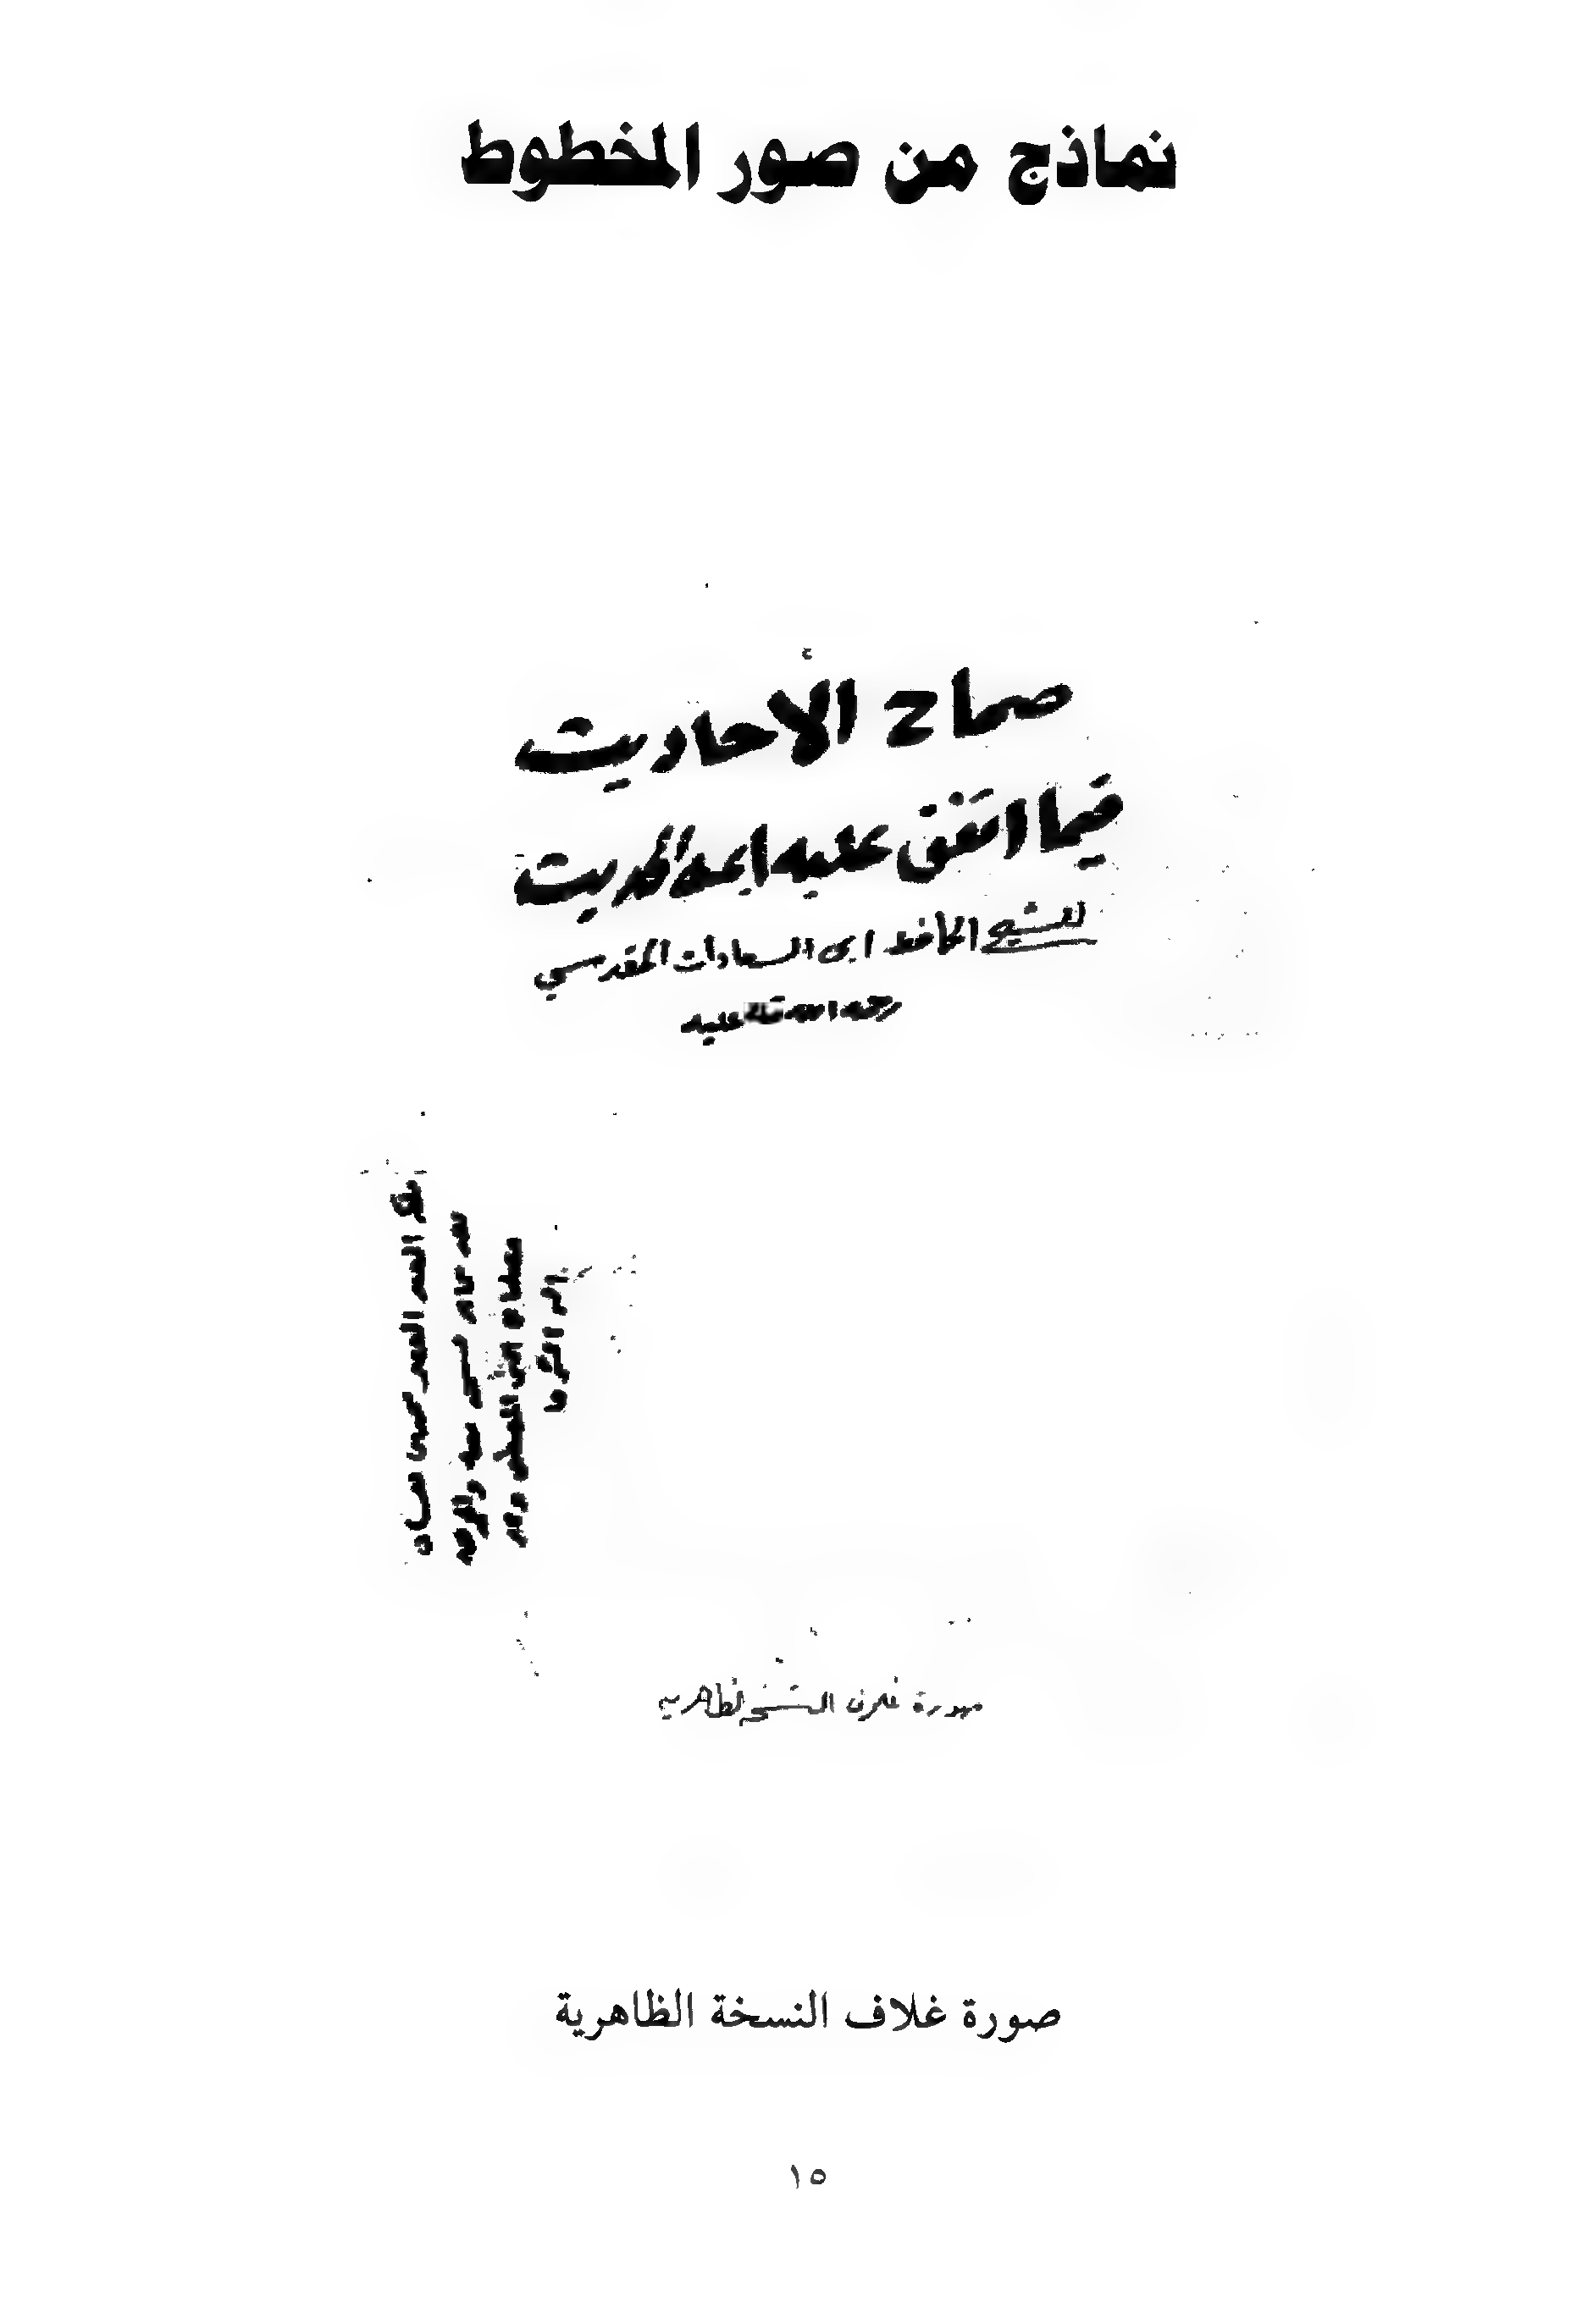 نماذج من صور المخطوط
صحاح الأحاديث
فيما اتفق عليه ايمة الحديث
للشيخ الحافظ ابى السعادات المقدسي
رحمة الله تعالى عليه
صورة غلاف النسخة الظاهرية
صورة غلاف النسخة الظاهرية
١٥